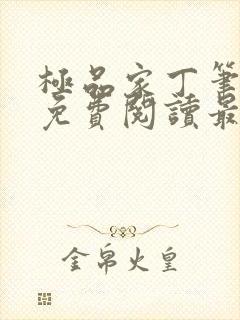 極品家丁筆
免費閱讀最
金帛火皇